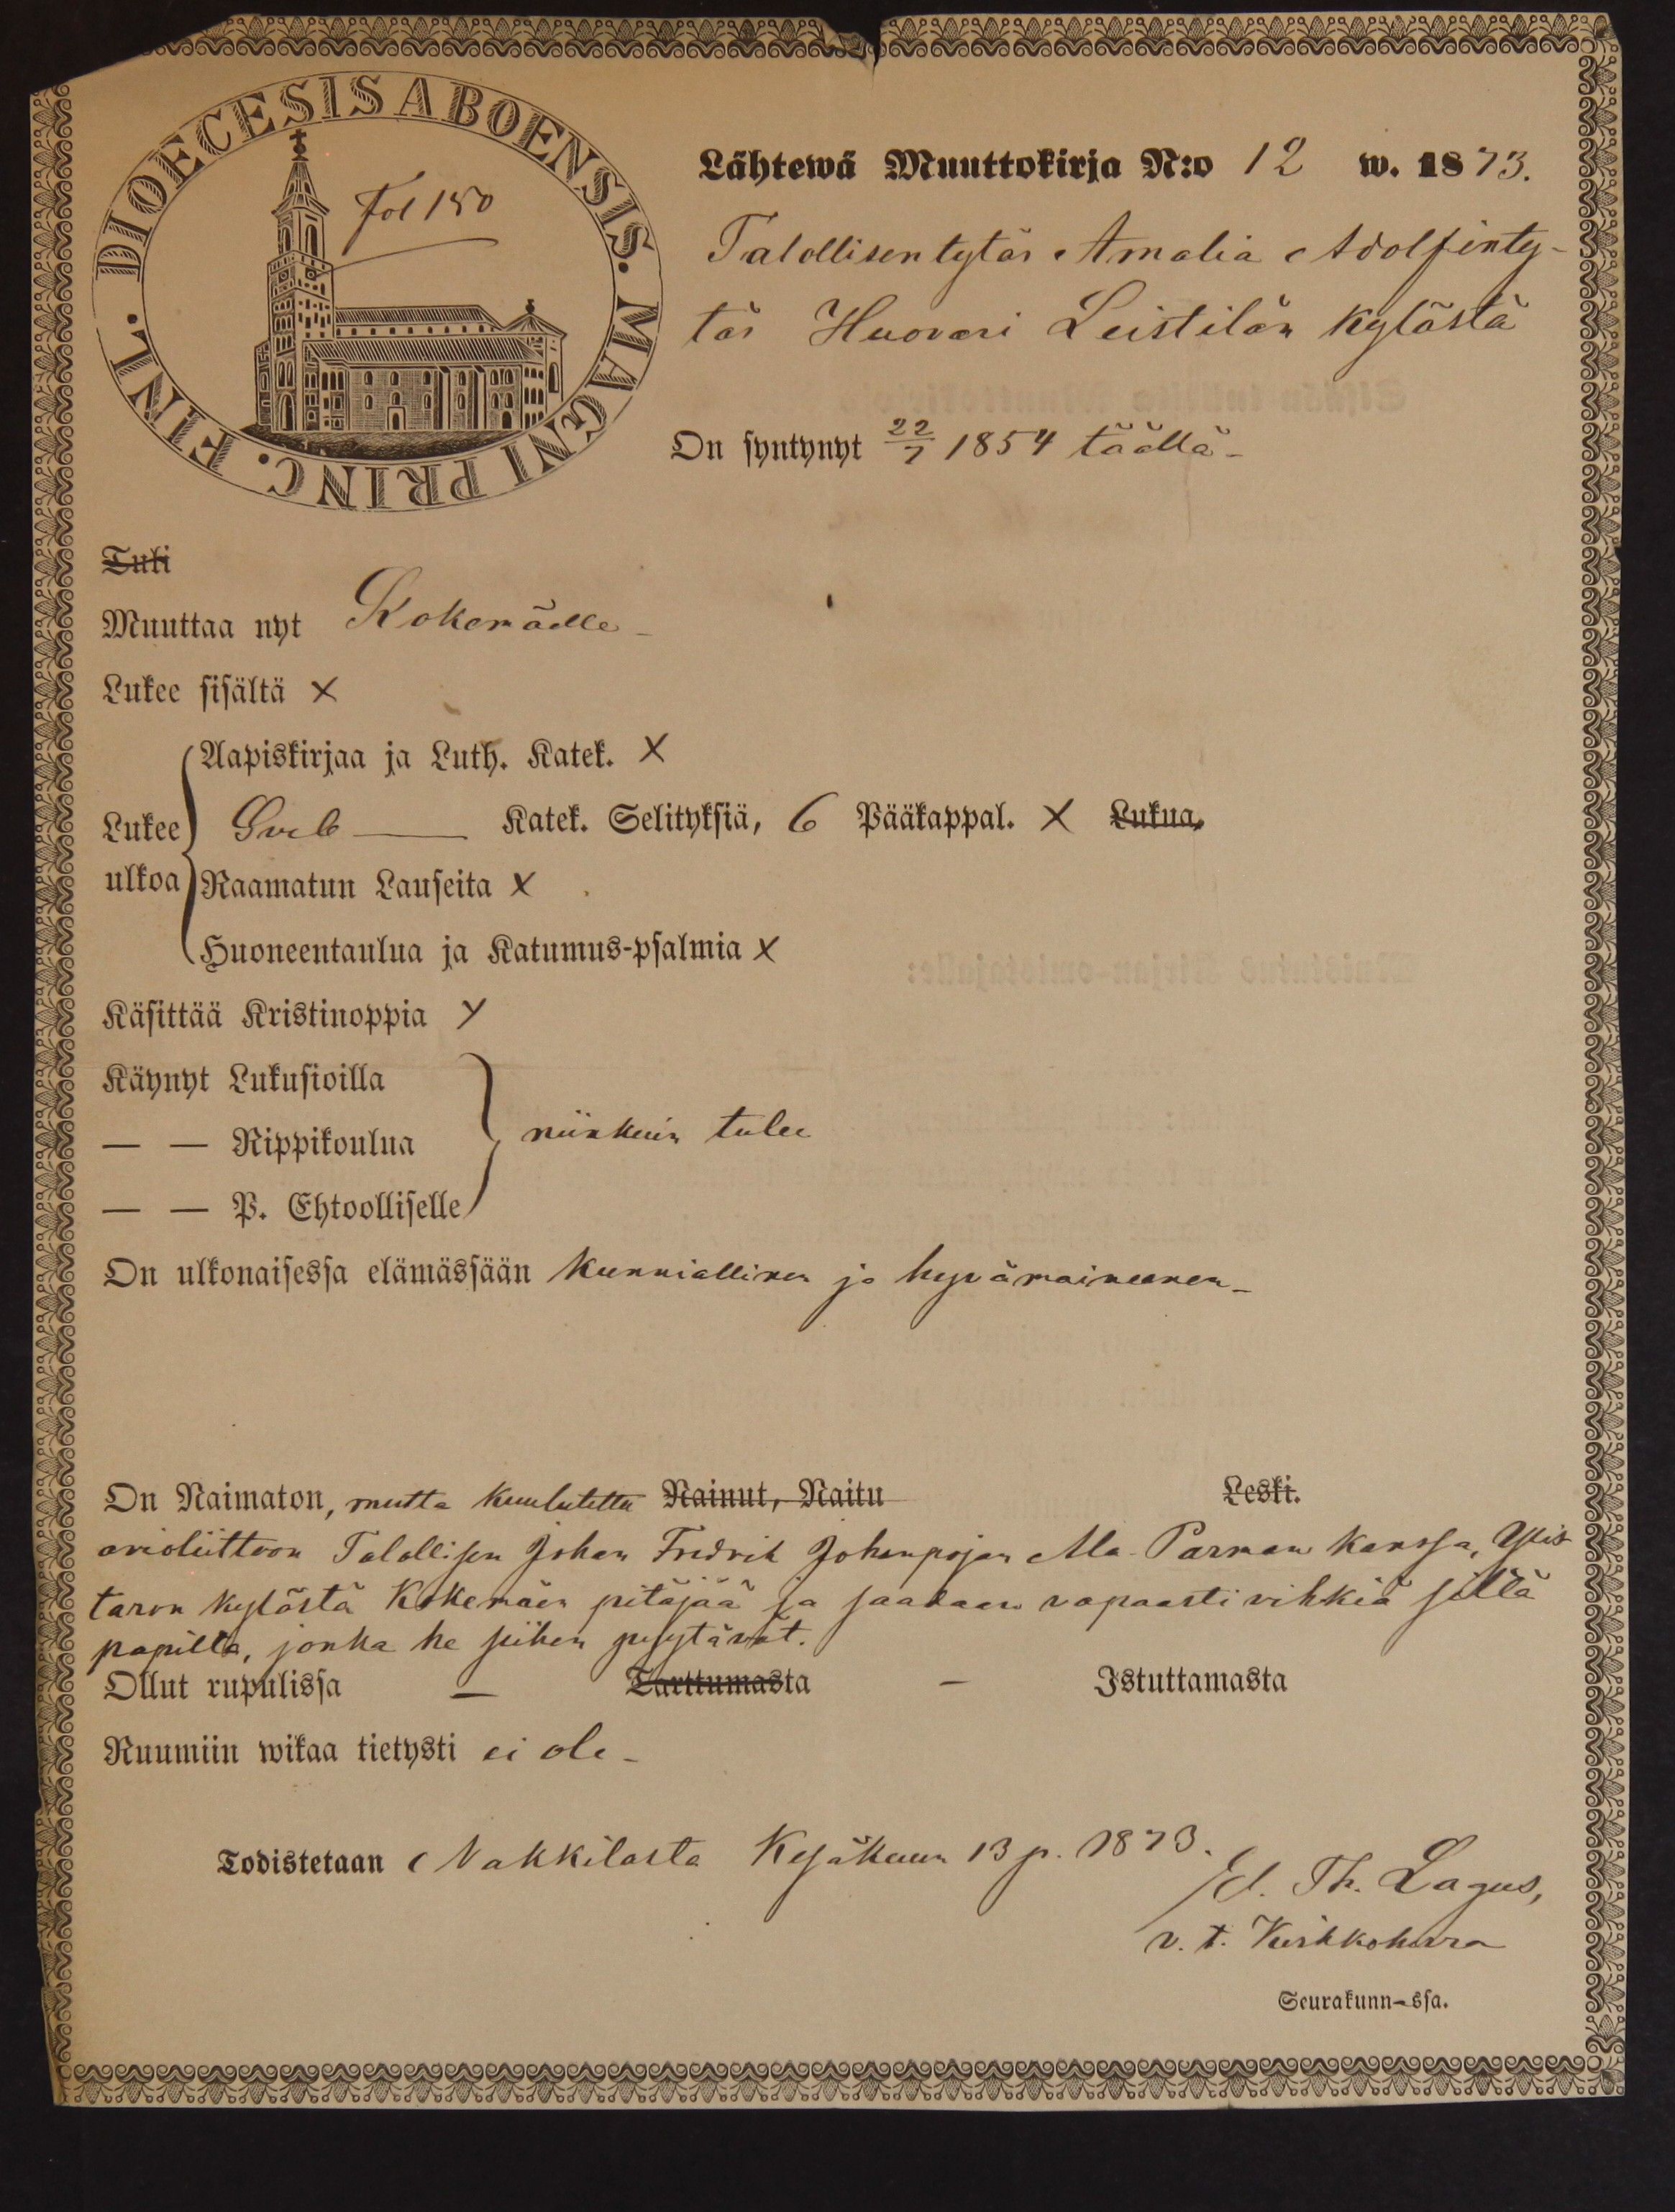 DIOECESIS ABOENSIS. MAGNI PRINC. FINL.
Fol 150
Lähtewä Muuttokirja N:o 12 w. 1873.
Talollisentytär Amalia Adolfinty-
tär Huovari Leistilän kylästä
On syntynyt 22/7 1854 täällä -
Tuli
Muuttaa nyt Kokemäelle -
Lukee sisältä x
Aapiskirjaa ja Luth. Katek. x
Lukee Sveb — Katek. Selityksiä, 6 Pääkappal. x Lukua,
ulkoa Raamatun Lauseita x
Huoneentaulua ja Katumus-psalmia x
Käsittää Kristinoppia x
Käynyt Lukusioilla
— — Rippikoulua niinkuin tulee
— — P. Ehtoolliselle
On ulkonaisessa elämässään kunniallinen ja hyvämaineenen -
On Naimaton, mutta kuulutettu Nainut, Naitu Leski.
avioliittoon Talollisen Johan Fredrik Johanpojan Ala Parman kanssa, Ylis
taron kylästä Kokemäen pitäjää ja saadaan vapaasti vihkiä sillä
papilla, jonka he siihen pyytävät.
Ollut rupulissa — Tarttumasta — Istuttamasta
Ruumiin wikaa tietysti ei ole -
Todistetaan Nakkilasta Kesäkuun 13 p. 1873.
Th. Lagus,
v. t. Kirkkoherra
Seurakunn-ssa.